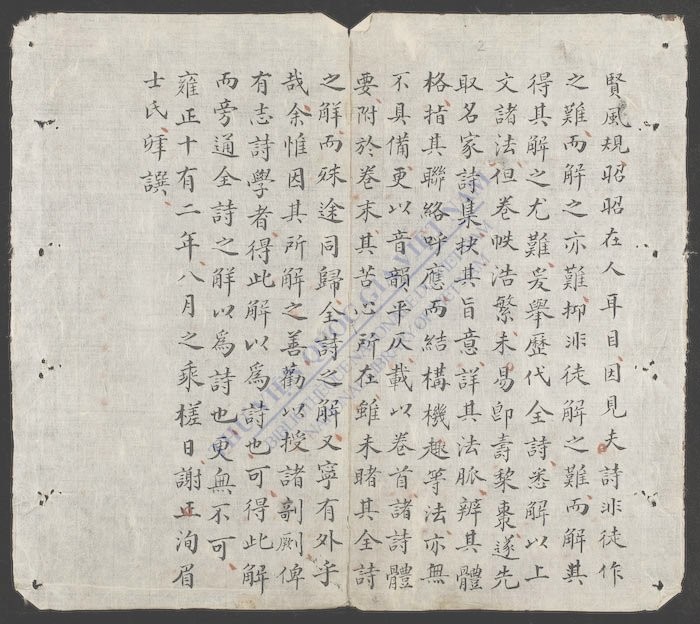 賢風規昭昭在人耳目因見夫詩非徒作
之難而解之亦難抑非徒解之難而解其
得其解之尤難爰舉歷代全詩悉解以上
文諸法但卷帙浩繁未易即壽棃棗遂先
取名家詩集抉其旨意詳其法脈辨其體
格指其聯絡呼應而結構機趣等法亦無
不具備更以音韻平仄載以卷首諸詩體
要附於卷末其苦心所在雖未睹其全詩
之解而殊途同歸全詩之解又寧有外乎
哉余惟因其所解之善勸以授諸剞劂俾
有志詩學者得此解以爲詩也可得此解
而旁通全詩之解以爲詩也更無不可
雍正十有二年八月之乘槎日謝正洵眉
士氏譔
THƯ VIỆN QUỐC GIA VIỆT NAM
NATIONAL LIBRARY OF VIETNAM